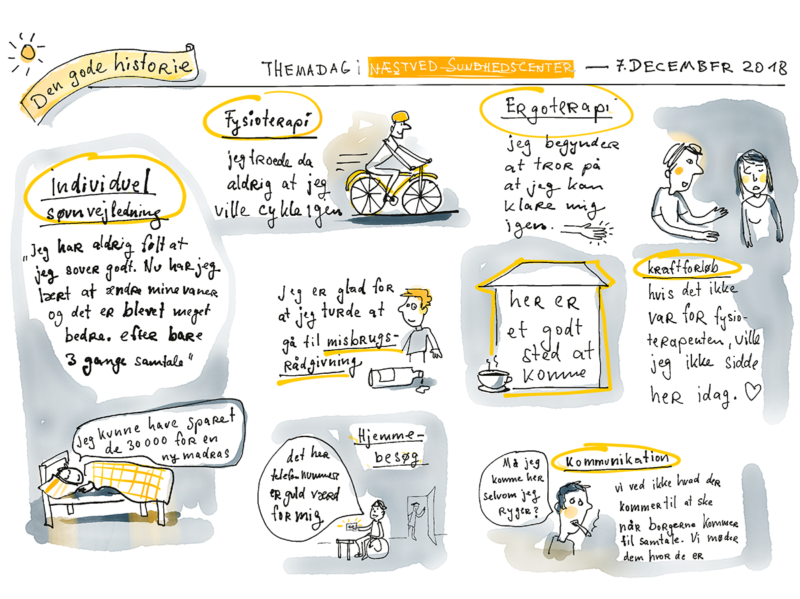 Den gode historie
THEMADAG i NÆSTVED SUNDHEDSCENTER — 7. DECEMBER 2018
Individuel
søvnvejledning
„Jeg har aldrig følt at
jeg sover godt. Nu har jeg
lært at ændre mine vaner
og det er blevet meget
bedre. efter bare
3 gange samtale"
Jeg kunne have sparet
de 30 000 for en
ny madras
Fysioterapi
jeg troede da
aldrig at jeg
ville cykle igen
Ergoterapi
jeg begynder
at tror på
at jeg kan
klare mig
igen.
Jeg er glad for
at jeg turde at
gå til misbrugs-
Rådgivning
her er
et godt
sted at
komme
kraftforløb
hvis det ikke
var for fysio-
terapeuten, ville
jeg ikke sidde
her idag. ♡
Hjemme-
besøg
det her
telefonnummer
er guld værd
for mig
Kommunikation
Må jeg
komme her
selvom jeg
Ryger?
vi ved ikke hvad der
kommer til at ske
når borgerne kommer
til samtale. Vi møder
dem hvor de er